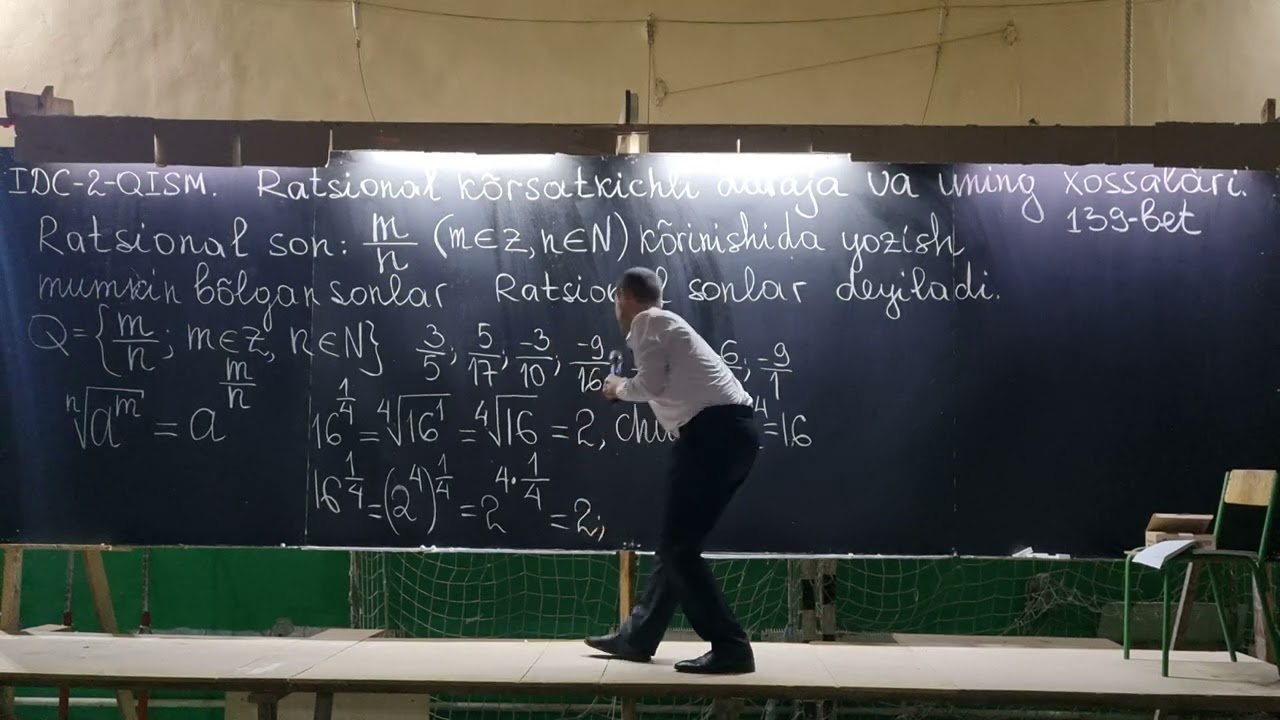 IDC-2-QISM. Ratsional kõrsatkichli daraja va uning xossalari.
139-bet
Ratsional son: m/n (m∈z, n∈N) kõrinishida yozish
mumkin bõlgan sonlar Ratsional sonlar deyiladi.
Q={m/n; m∈z, n∈N} 3/5; 5/17; -3/10; -9/16 -9/1
ⁿ√a^m = a^(m/n) 16^(1/4) = ⁴√16^1 = ⁴√16 = 2, ⁴=16
16^(1/4) = (2^4)^(1/4) = 2^(4·1/4) = 2;